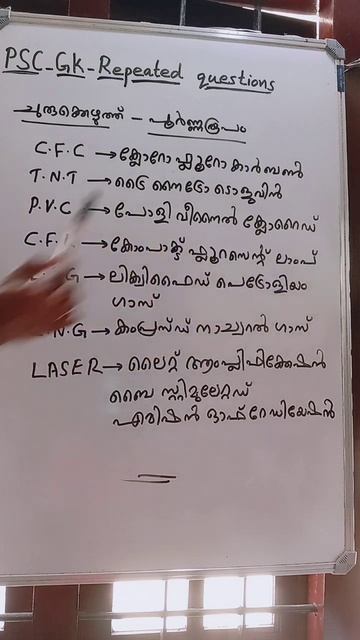 PSC-GK-Repeated questions
ചുരുക്കെഴുത്ത് - പൂർണ്ണരൂപം
C.F.C → ക്ലോറോ ഫ്ലൂറോ കാർബൺ
T.N.T → ട്രൈ നൈട്രോ ടൊളുവിൻ
P.V.C → പോളി വിനൈൽ ക്ലോറൈഡ്
C.F. → കോംപാക്ട് ഫ്ലൂറസെന്റ് ലാംപ്
G → ലിക്വിഫൈഡ് പെട്രോളിയം
ഗാസ്
.N.G → കംപ്രസ്ഡ് നാച്വറൽ ഗാസ്
LASER → ലൈറ്റ് ആംപ്ലിഫിക്കേഷൻ
ബൈ സ്റ്റിമുലേറ്റഡ്
എമിഷൻ ഓഫ് റേഡിയേഷൻ